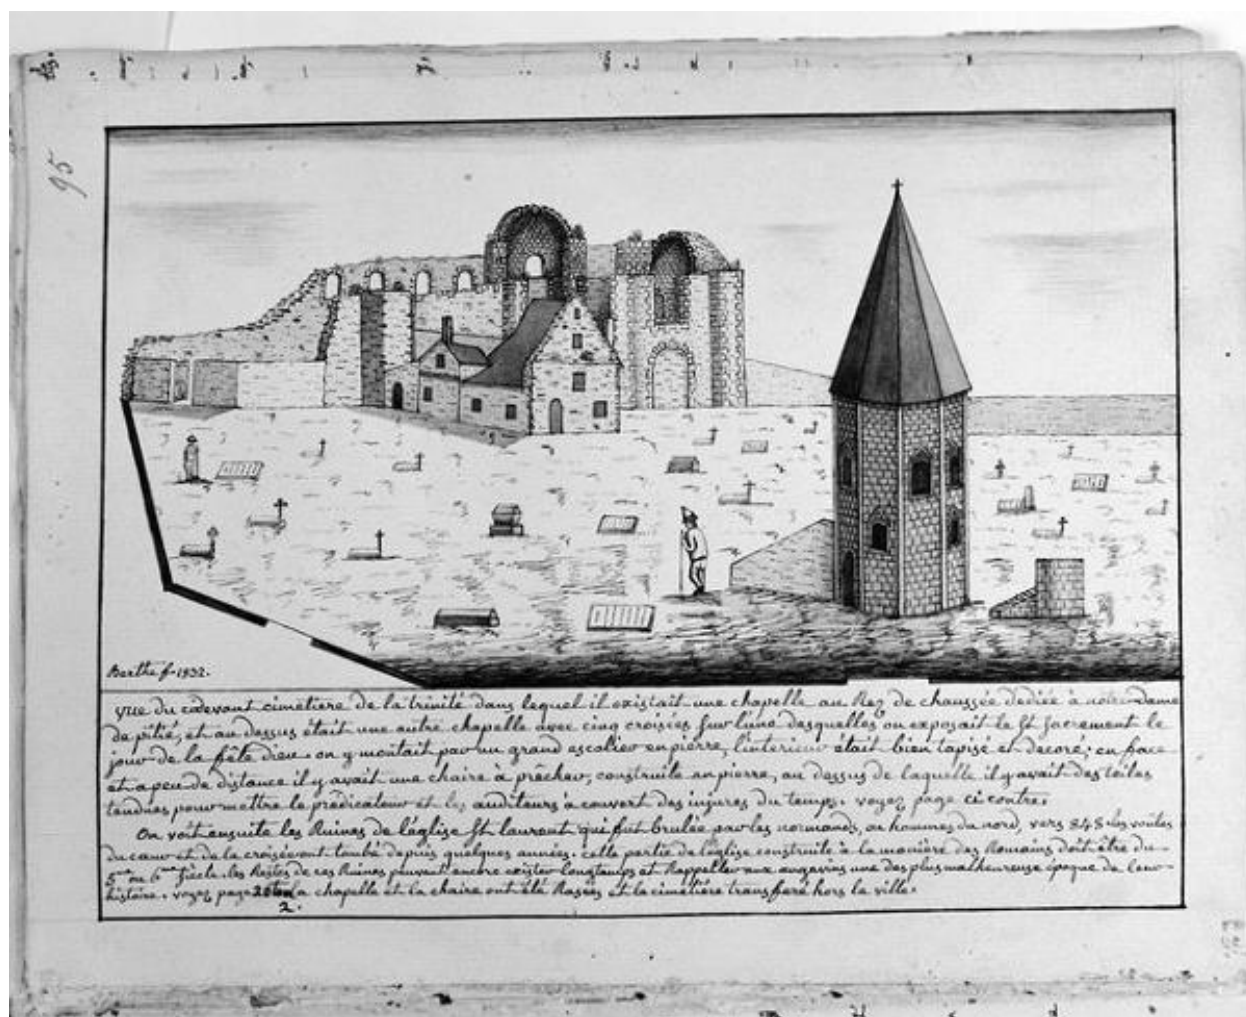 95
Berthe f. 1832.
vue du cidevant cimetiere de la trinité dans lequel il existait une chapelle au Rez de chaussée dediée à notre-dame
de pitié, et au dessus était une autre chapelle avec cinq croisées sur l'une desquelles on exposait le St. sacrement le
jour de la fête dieu. on y montait par un grand escalier en pierre, l'interieur était bien tapisé et decoré. en face
et a peu de distance il y avait une chaire à prêcher, construite en pierre, au dessus de laquelle il y avait des toiles
tendues pour mettre le prédicateur et les auditeurs à couvert des injures du temps. voyez page ci contre.
On voit ensuite les Ruines de l'église St. laurent qui fut brulée par les normands, ou hommes du nord, vers 848. les voûtes
du cœur et de la croisée ont tombé depuis quelques années. cette partie de l'église construite à la manière des Romains doit être du
5me ou 6me siecle. les Restes de ces Ruines peuvent encore exister longtemps et Rappeller aux angevins une des plus malheureuse époque de leur
histoire. voyez page la chapelle et la chaire ont été Rasées et le cimetière transferé hors la ville.
2.